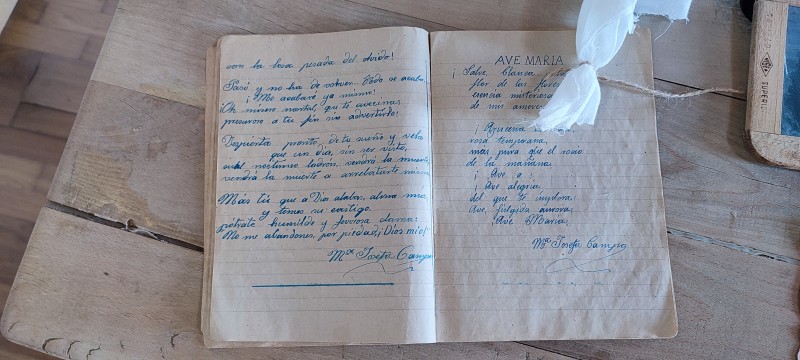 con la losa pesada del olvido!
Pasó y no ha de volver. Todo se acaba,
¡Me acabaré yo mismo!
¡Oh mísero mortal, que te avecinas
presuroso a tu fin sin advertirlo!
Despierta pronto, de tu sueño y vela
que un día, sin ser visto,
cual nocturno ladrón, vendrá la muerte,
vendrá la muerte a arrebatarte
Mas tú que a Dios alabas, alma mía,
y temes su castigo
póstrate humilde y fervorosa clama:
No me abandones, por piedad, ¡Dios mío!
Mª Josefa Campos
AVE MARIA
¡Salve, blanca
flor de las flores
esencia misteriosa
de mis amores
¡Azucena
rosa temprana,
mas pura que el rocío
de la mañana.
¡Ave
¡Ave alegría
del que te implora!
Ave, fúlgida aurora,
Ave María.
Mª Josefa Campos
SUPER